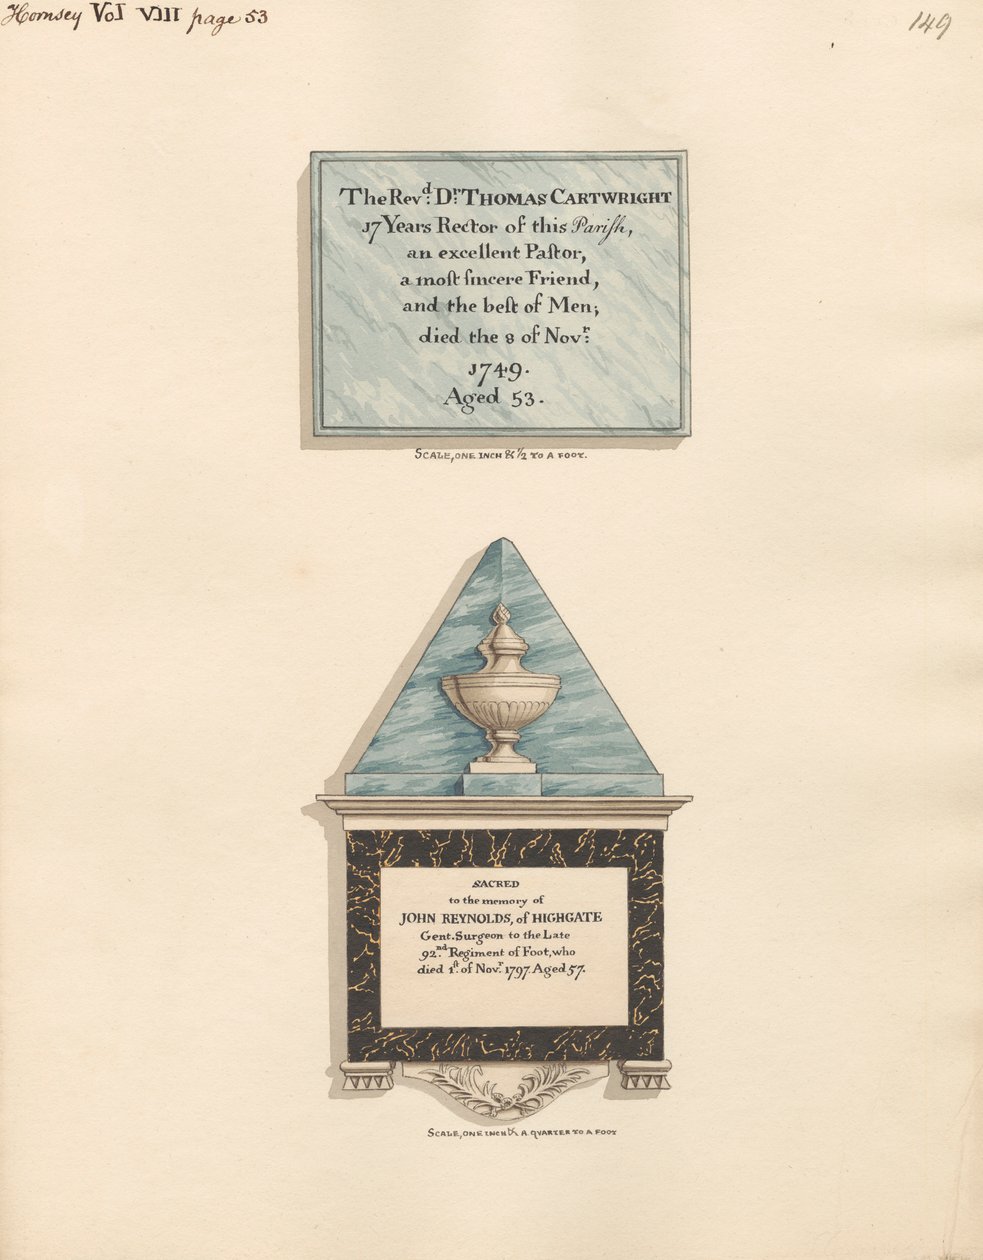 Hornsey Vol VIII page 53
149
The Revd. Dr. THOMAS CARTWRIGHT
17 Years Rector of this Pariſh,
an excellent Paſtor,
a moſt ſincere Friend,
and the beſt of Men;
died the 8 of Novr.
1749.
Aged 53.
SCALE, ONE INCH & 1/2 TO A FOOT.
SACRED
to the memory of
JOHN REYNOLDS, of HIGHGATE
Gent. Surgeon to the Late
92nd. Regiment of Foot, who
died 1ſt. of Novr. 1797. Aged 57.
SCALE, ONE INCH & A QUARTER TO A FOOT